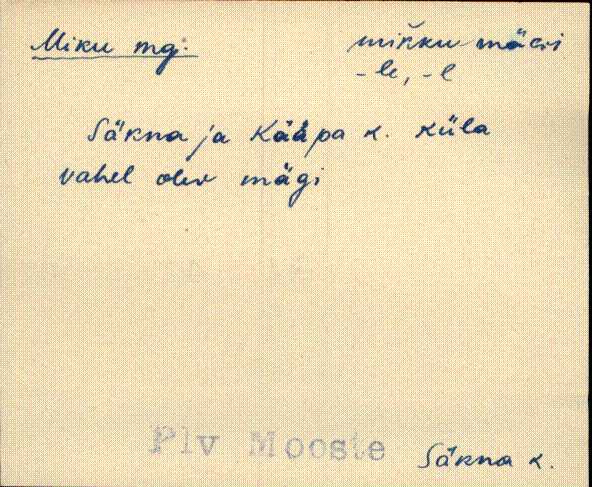 Miku mg. mikku mäGi
-le, -l
Säkna ja Kääpa k. küla
vahel olev mägi
Plv Mooste
Säkna k.